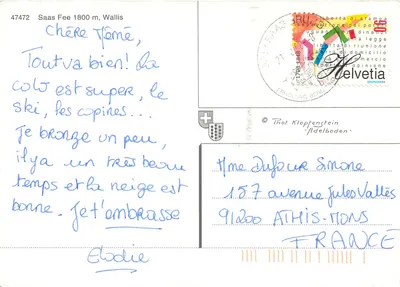 47472 Saas Fee 1800 m, Wallis
Chère Mémé,
Tout va bien! La
colo est super, le
ski, les copines...
Je bronze un peu,
il y a un très beau
temps et la neige est
bonne. Je t'embrasse
Elodie
Helvetia
© Phot. Klopfenstein
Adelboden
Mme Dufour Simone
187 avenue Jules Vallès
91200 ATHIS-MONS
FRANCE